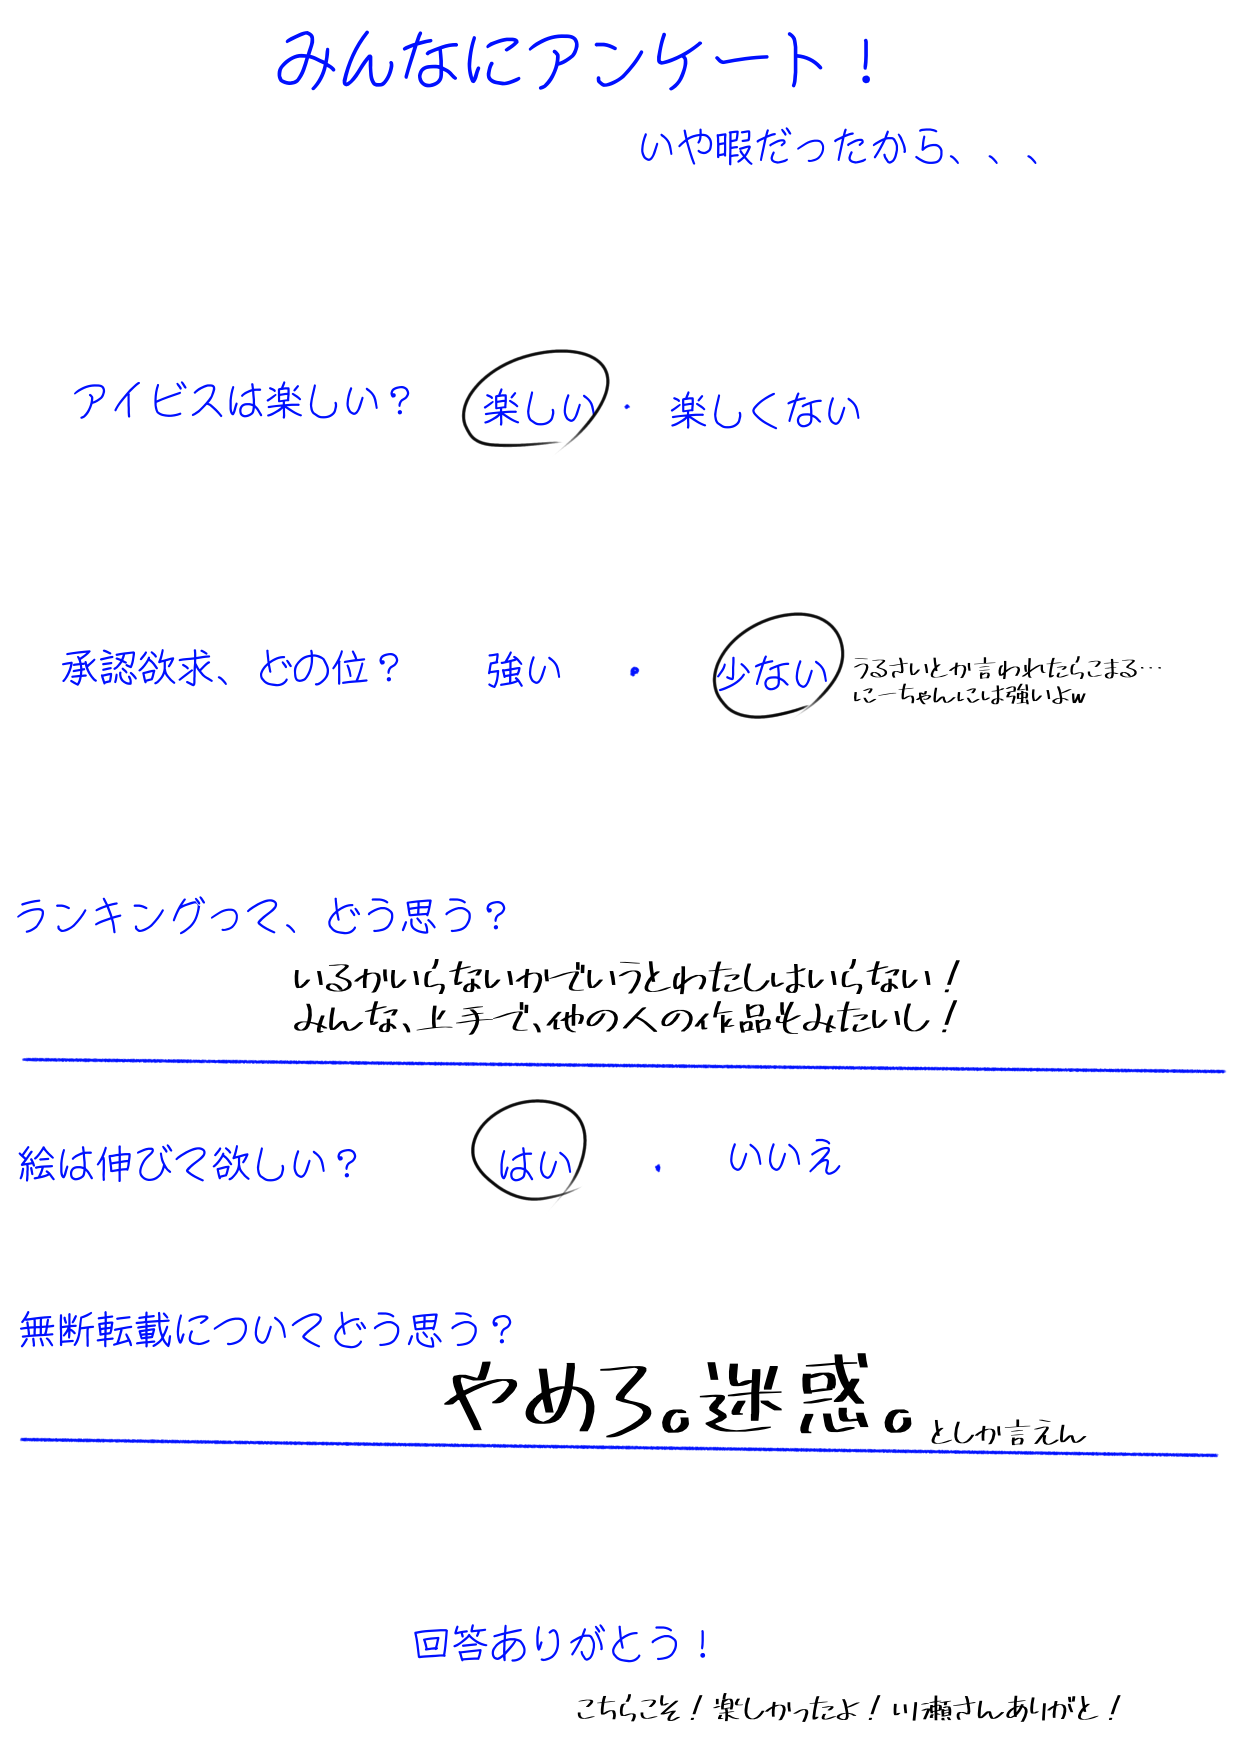 みんなにアンケート！
いや暇だったから、、、
アイビスは楽しい？　楽しい・楽しくない
承認欲求、どの位？　強い・少ない
うるさいとか言われたらこまる…
にーちゃんには強いよw
ランキングって、どう思う？
いるかいらないかでいうとわたしはいらない！
みんな、上手で、他の人の作品もみたいし！
絵は伸びて欲しい？　はい．いいえ
無断転載についてどう思う？
やめろ。迷惑。としか言えん
回答ありがとう！
こちらこそ！楽しかったよ！川瀬さんありがと！